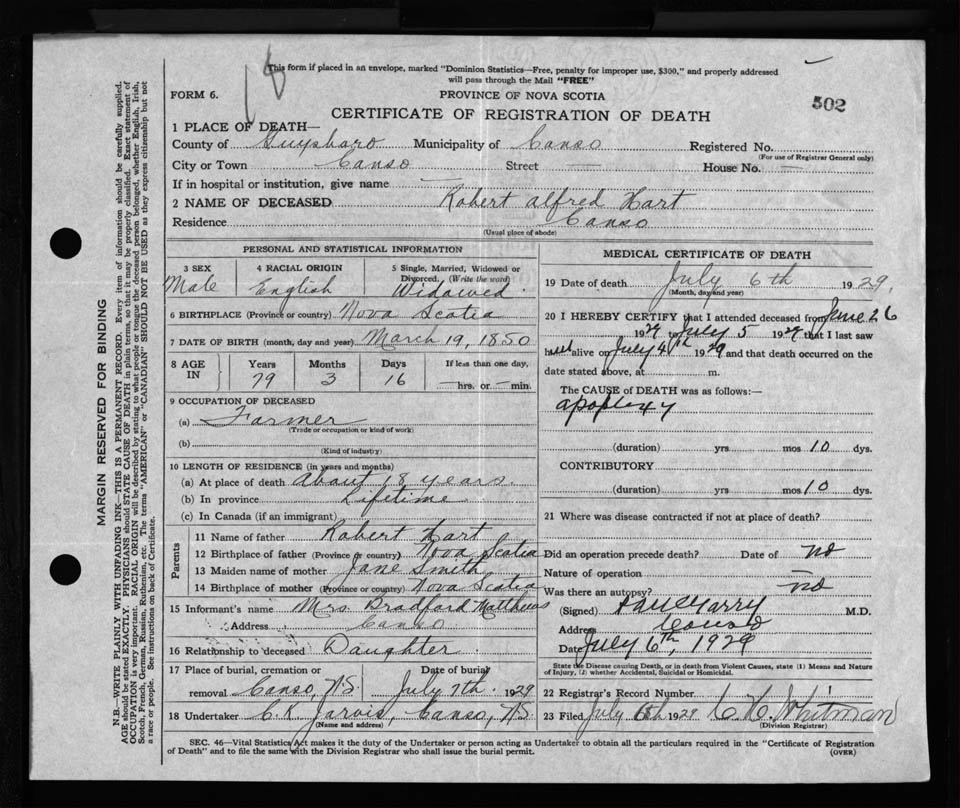 18
This form if placed in an envelope, marked "Dominion Statistics—Free, penalty for improper use, $300," and properly addressed
will pass through the Mail "FREE"
FORM 6.
PROVINCE OF NOVA SCOTIA
502
CERTIFICATE OF REGISTRATION OF DEATH
1 PLACE OF DEATH—
County of Guysboro Municipality of Canso Registered No.
(For use of Registrar General only)
City or Town Canso Street — House No. —
If in hospital or institution, give name —
2 NAME OF DECEASED Robert Alfred Hart
Residence Canso
(Usual place of abode)
PERSONAL AND STATISTICAL INFORMATION
3 SEX
Male
4 RACIAL ORIGIN
English
5 Single, Married, Widowed or
Divorced. (Write the word)
Widowed.
6 BIRTHPLACE (Province or country) Nova Scotia
7 DATE OF BIRTH (month, day and year) March 19, 1850
8 AGE
IN
Years
79
Months
3
Days
16
If less than one day,
— hrs. or — min.
9 OCCUPATION OF DECEASED
(a) Farmer
(Trade or occupation or kind of work)
(b)
(Kind of industry)
10 LENGTH OF RESIDENCE (in years and months)
(a) At place of death About 18 years.
(b) In province Lifetime
(c) In Canada (if an immigrant)
Parents
11 Name of father Robert Hart
12 Birthplace of father (Province or country) Nova Scotia
13 Maiden name of mother Jane Smith
14 Birthplace of mother (Province or country) Nova Scotia
15 Informant's name Mrs Bradford Matthews
Address Canso
16 Relationship to deceased Daughter
17 Place of burial, cremation or Date of burial
removal Canso, N.S. July 7th. 1929
18 Undertaker C. K. Jarvis, Canso, N.S.
(Name and address)
MEDICAL CERTIFICATE OF DEATH
19 Date of death July 6th 1929.
(Month, day and year)
20 I HEREBY CERTIFY that I attended deceased from June 26
1929 to July 5 1929 that I last saw
h alive on July 4th 1929 and that death occurred on the
date stated above, at m.
The CAUSE of DEATH was as follows:
apoplexy
(duration) yrs mos 10 dys.
CONTRIBUTORY
(duration) yrs. mos 10 dys.
21 Where was disease contracted if not at place of death?
Did an operation precede death? Date of no
Nature of operation —
Was there an autopsy? no
(Signed) M.D.
Address Canso
Date July 6th, 1929
State the Disease causing Death, or in death from Violent Causes, state (1) Means and Nature
of Injury, (2) whether Accidental, Suicidal or Homicidal.
22 Registrar's Record Number
23 Filed July 6th 1929 C. H. Whitman
(Division Registrar)
SEC. 46—Vital Statistics Act makes it the duty of the Undertaker or person acting as Undertaker to obtain all the particulars required in the "Certificate of Registration
of Death" and to file the same with the Division Registrar who shall issue the burial permit. (OVER)
MARGIN RESERVED FOR BINDING
N.B.—WRITE PLAINLY WITH UNFADING INK—THIS IS A PERMANENT RECORD. Every item of information should be carefully supplied.
AGE should be stated EXACTLY. PHYSICIANS should STATE CAUSE OF DEATH in plain terms, so that it may be properly classified. Exact statement of
OCCUPATION is very important. RACIAL ORIGIN will be described by stating to what people or tongue the deceased person belonged, whether English, Irish,
Scotch, French, German, Russian, Ruthenian, etc. The terms "AMERICAN" or "CANADIAN" SHOULD NOT BE USED as they express citizenship but not
a race or people. See instructions on back of Certificate.